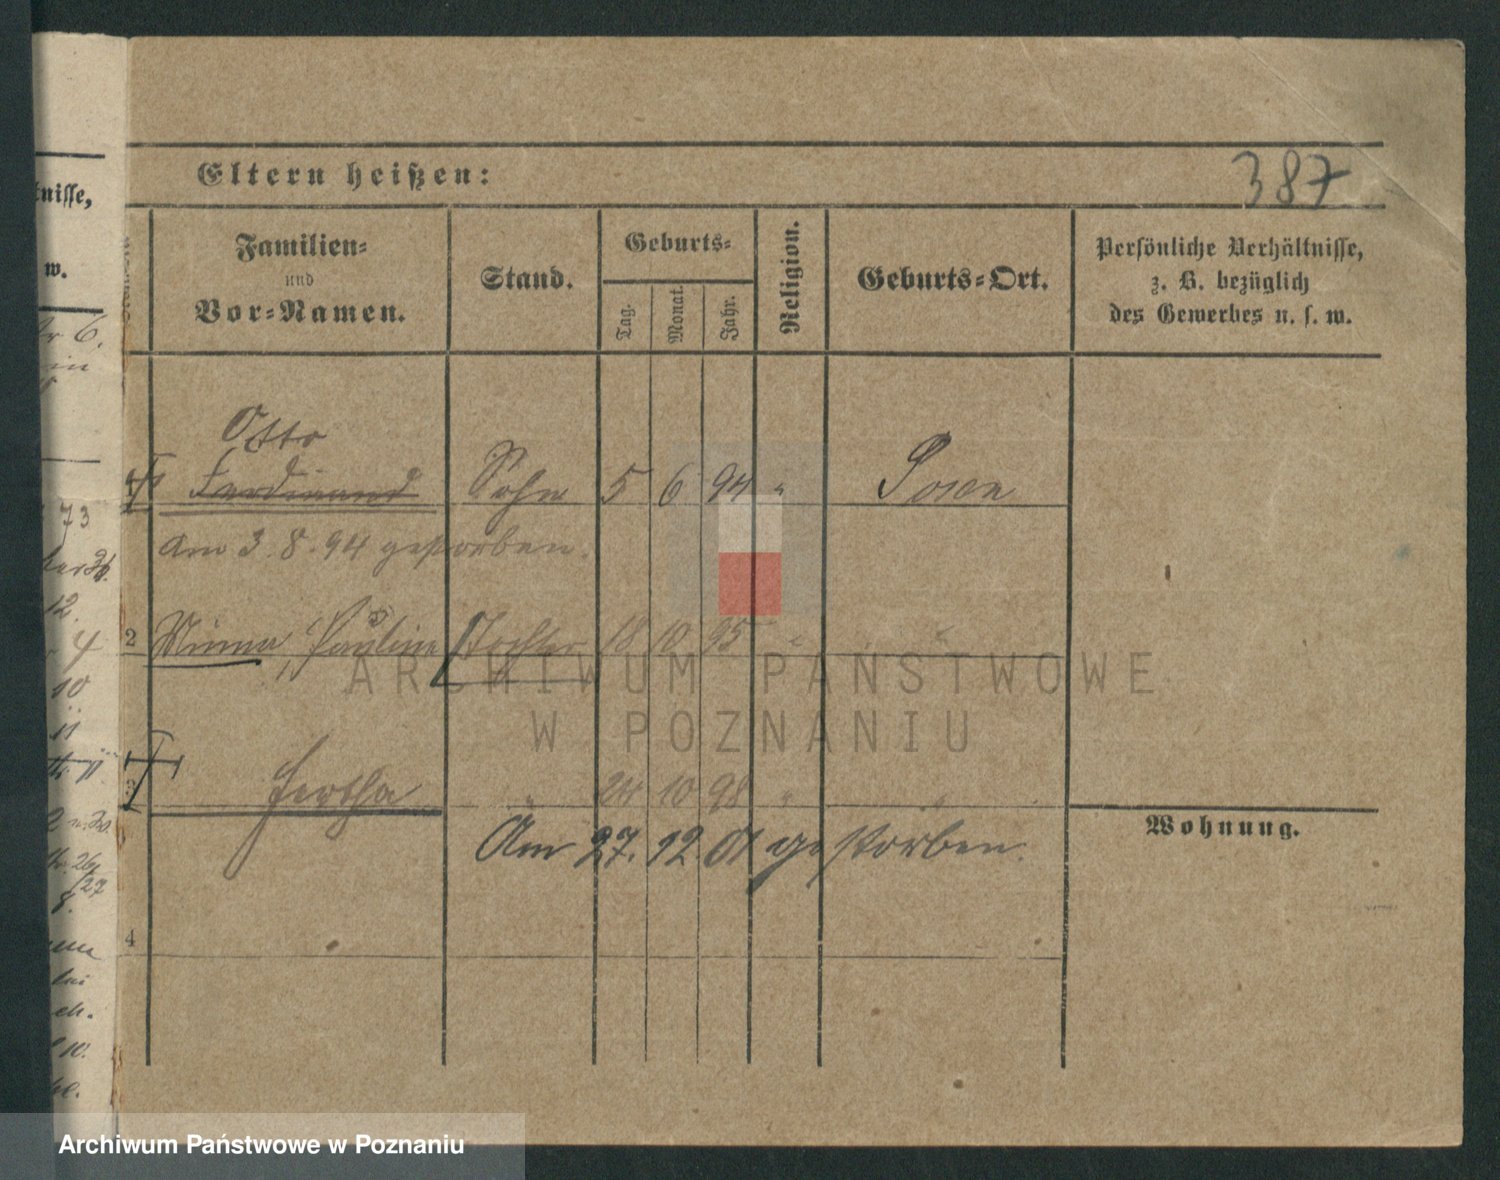 Eltern heißen:
387
Familien-
und
Vor-Namen.
Stand.
Geburts-
Tag.
Monat.
Jahr.
Religion.
Geburts-Ort.
Persönliche Verhältnisse,
z. B. bezüglich
des Gewerbes u. s. w.
Otto
1 Ferdinand Sohn 5 6 94 " Posen
am 3. 8. 94 gestorben.
2 Minna, Pauline Tochter 18 10 95 " "
3 Hertha " 24 10 98 " "
Am 27. 12 01 gestorben.
Wohnung.
4
tnisse,
w.
6.
73
12.
4
10
11
26/27
8.
10.
ARCHIWUM PAŃSTWOWE
W POZNANIU
Archiwum Państwowe w Poznaniu